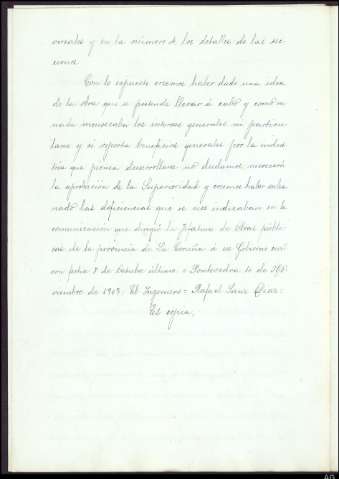 y en la número de los detalles de las sec
ciones.
Con lo expuesto creemos haber dado una idea
de la obra que se pretende llevar á cabo y como
los intereses generales ni particu
lares y si reporta beneficios generales por la indus
tria que piensa desarrollar no dudamos merecerá
la aprobación de la Superioridad y creemos haber subsa
nado las deficiencias que se nos indicaban en la
comunicación que dirigió la Jefatura de Obras públi
cas de la provincia de La Coruña á ese Gobierno civil
con fecha 7 de Octubre último = Pontevedra 10 de No
viembre de 1913 = El Ingeniero = Rafael
Es copia,